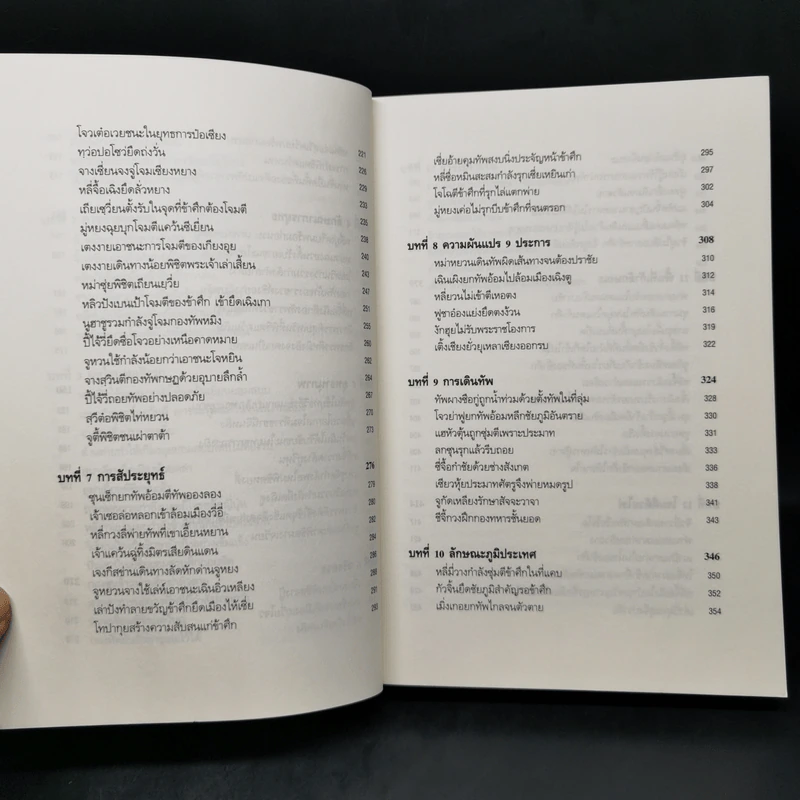 โจวเต๋อเวยชนะในยุทธการป๋อเซียง
ทว่อปอโซว่ยึดถ่งวั่น 221
จางเซี่ยนจงจู่โจมเซียงหยาง 226
หลี่จื้อเฉิงยึดลั่วหยาง 228
เถียเซวี่ยนตั้งรับในจุดที่ข้าศึกต้องโจมตี 233
มู่หยงฉุยบุกโจมตีแคว้นซีเยี่ยน 235
เตงงายเอาชนะการโจมตีของเกียงอุย 238
เตงงายเดินทางน้อยพิชิตพระเจ้าเล่าเสี้ยน 240
หม่าซุ่ยพิชิตเถียนเยวี่ย 243
หลิวปังเบนเป้าโจมตีของข้าศึก เข้ายึดเฉิงเกา 247
นูฮาชูรวมกำลังจู่โจมกองทัพหมิง 251
ปี้ไจ้วี่ยึดซื่อโจวอย่างเหนือคาดหมาย 255
จูหวนใช้กำลังน้อยกว่าเอาชนะโจหยิน 260
จางสุวินตีกองทัพกษฏด้วยอุบายลึกล้ำ 262
ปี้ไจ้วี่ถอยทัพอย่างปลอดภัย 264
สุวีต๋อพิชิตไท่หยวน 267
จูตี้พิชิตชนเผ่าตาต้า 271
273
บทที่ 7 การสัประยุทธ์ 276
ซุนเซ็กยกทัพอ้อมตีทัพอองลอง 279
เจ้าเซอล่อหลอกเข้าล้อมเมืองวี่อี่
หลี่กวงลี่พ่ายทัพที่เขาเอี้ยนหยาน
เจ้าแคว้นฉู่ทิ้งมิตรเสียดินแดน
เจงกีสข่านเดินทางลัดหักด่านจูหยง
จูหยวนจางใช้เล่ห์เอาชนะเฉินอิ่วเหลียง
เล่าปังทำลายขวัญข้าศึกยึดเมืองไห้เซี่ย 291
โทปากุยสร้างความสับสนแก่ข้าศึก 293
เซี่ยอ้ายคุมทัพสงบนิ่งประจัญหน้าข้าศึก 295
หลี่ซื่อหมินสะสมกำลังรุกเซี่ยเหยินเก่า 297
โจโฉตีข้าศึกที่รุกไล่แตกพ่าย 302
มู่หยงเค่อไม่รุกบีบข้าศึกที่จนตรอก 304
บทที่ 8 ความผันแปร 9 ประการ 308
หม่าหยวนเดินทัพผิดเส้นทางจนต้องปราชัย 310
เฉินเผิงยกทัพอ้อมไปล้อมเมืองเฉิงตู 312
หลี่ยวนไม่เข้าตีเหอตง 314
ฟูซาอ๋องแย่งยึดตงง้วน 316
งักฮุยไม่รับพระราชโองการ 319
เตี้งเซียงยั่วยุเหลาเซียงออกรบ 322
บทที่ 9 การเดินทัพ 324
ทัพผางซือกู่ถูกน้ำท่วมด้วยตั้งทัพในที่ลุ่ม 328
โจวย่าฟูยกทัพอ้อมหลีกชัยภูมิอันตราย 330
แฮหัวตุ้นถูกซุ่มตีเพราะประมาท 331
ลกซุนรุกแล้วรีบถอย 333
ซีจื้อกำชัยด้วยช่างสังเกต 336
เซียวหุ้ยประมาทศัตรูจึงพ่ายหมดรูป 338
จูกัดเหลียงรักษาสัจจะวาจา 341
ชีจี้กวงฝึกกองทหารชั้นยอด 343
บทที่ 10 ลักษณะภูมิประเทศ 346
หลี่มี่วางกำลังซุ่มตีข้าศึกในที่แคบ 350
กัวจิ้นยึดชัยภูมิสำคัญรอข้าศึก 352
เมิ่งเกอยกทัพไกลจนตัวตาย 354